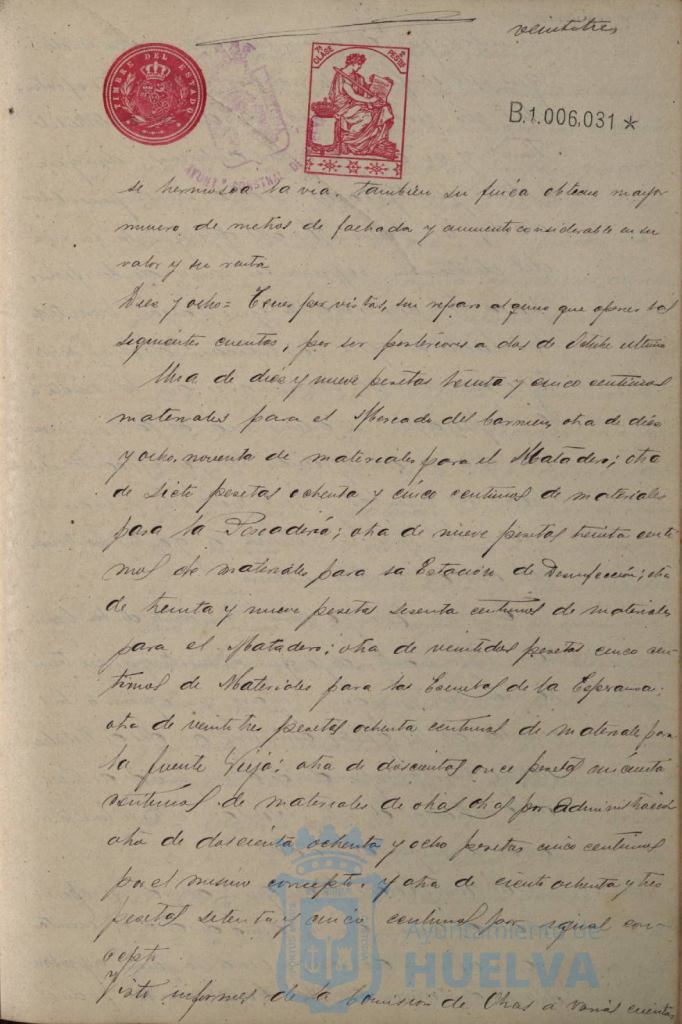 veintitres
TIMBRE DEL ESTADO
7ª CLASE
2 PESETAS
B.1.006,031 *
se hermosea la via, tambien su finca obtiene mayor
numero de metros de fachada y aumento considerable en su
valor y su renta
Diez y ocho = Tener por vistas, sin reparo alguno que oponer las
siguientes cuentas, por ser posteriores a dos de Octubre ultimo
Una de diez y nueve pesetas treinta y cinco centimos
materiales para el Mercado del Carmen, otra de diez
y ocho, noventa de materiales para el Matadero; otra
de siete pesetas ochenta y cinco centimos de materiales
para la Pescadería; otra de nueve pesetas treinta centi-
mos de materiales para la Estación de Desinfección; otra
de treinta y nueve pesetas sesenta centimos de materiales
para el Matadero; otra de veintidos pesetas cinco cen-
timos de Materiales para las Escuelas de la Esperanza;
otra de veintitres pesetas ochenta centimos de materiales para
la fuente Vieja; otra de doscientas once pesetas cincuenta
centimos de materiales de otras obras por administración
otra de doscientas ochenta y ocho pesetas cinco centimos
por el mismo concepto, y otra de ciento ochenta y tres
pesetas setenta y cinco centimos por igual con-
cepto
Visto informes de la Comisión de Obras á varias cuentas
Ayuntamiento de
HUELVA